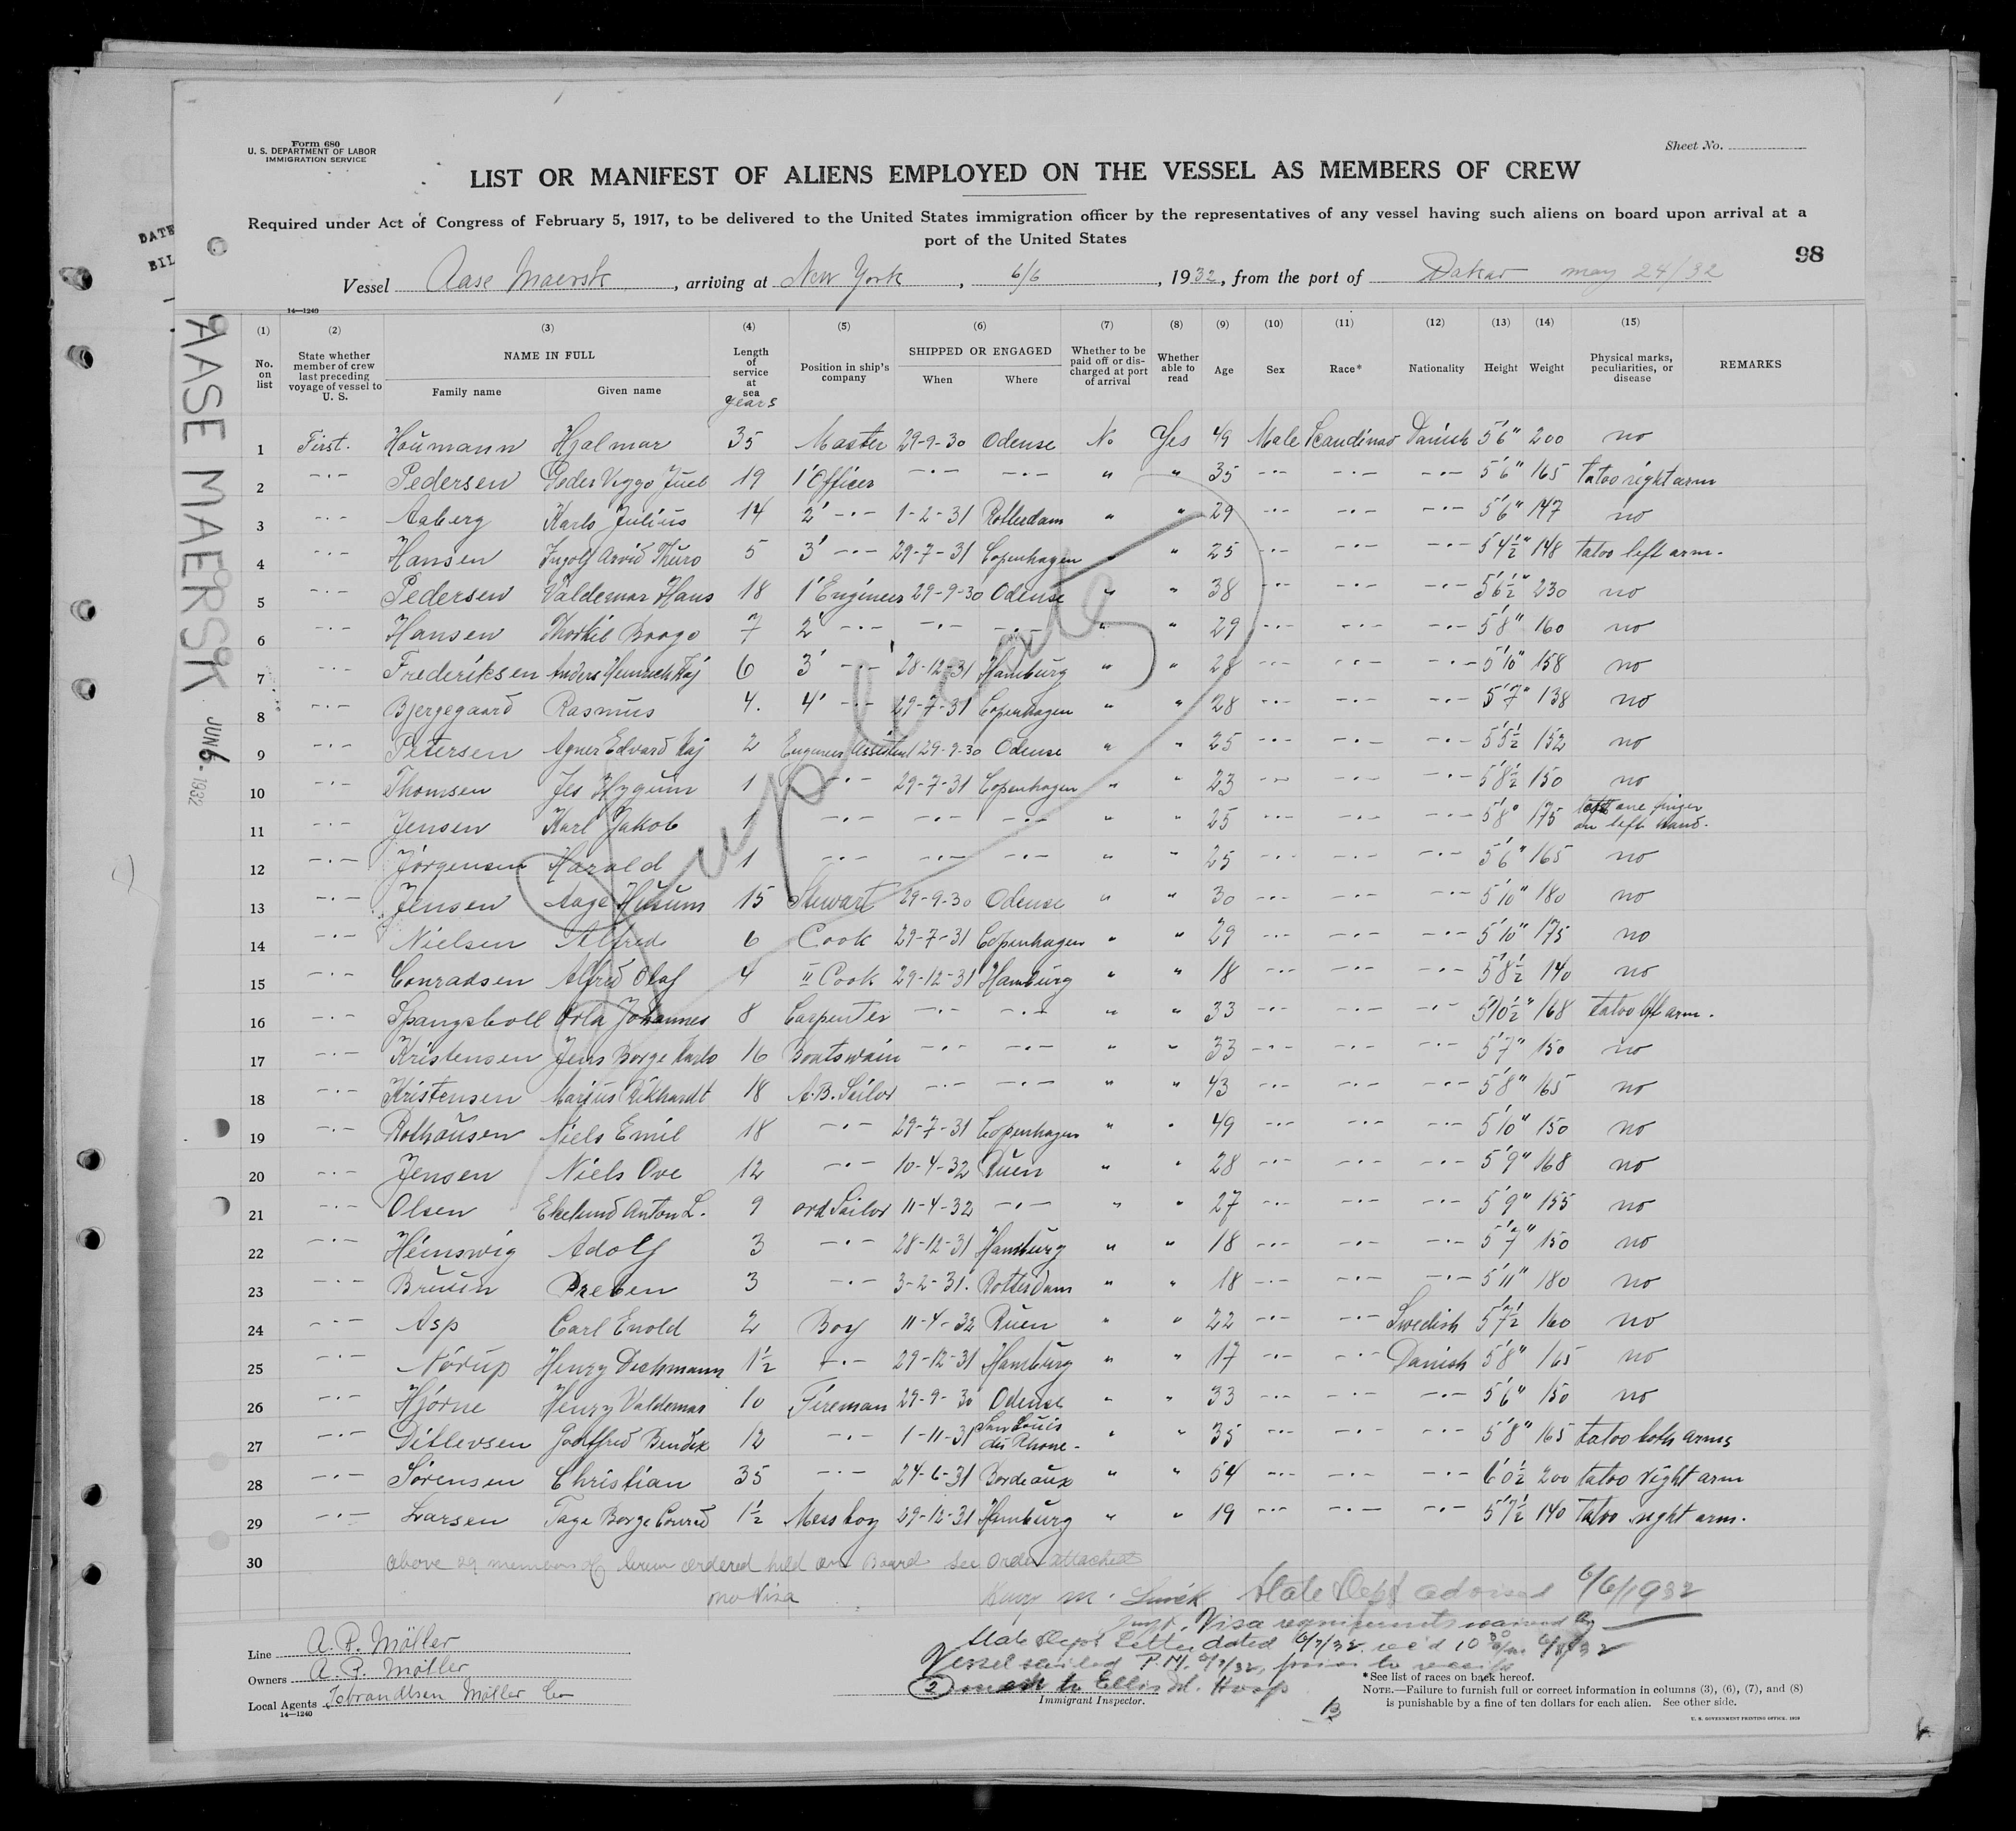 Form 680
U. S. DEPARTMENT OF LABOR
IMMIGRATION SERVICE
Sheet No.
LIST OR MANIFEST OF ALIENS EMPLOYED ON THE VESSEL AS MEMBERS OF CREW
Required under Act of Congress of February 5, 1917, to be delivered to the United States immigration officer by the representatives of any vessel having such aliens on board upon arrival at a
port of the United States
98
DATE
BIL
Vessel Aase Maersk, arriving at New York, 6/6, 1932, from the port of Dakar may 24/32
14—1240
AASE MAERSK JUN 6. 1932
(1) (2) (3) (4) (5) (6) (7) (8) (9) (10) (11) (12) (13) (14) (15)
No. on list
State whether member of crew last preceding voyage of vessel to U. S.
NAME IN FULL
Family name Given name
Length of service at sea years
Position in ship's company
SHIPPED OR ENGAGED
When Where
Whether to be paid off or discharged at port of arrival
Whether able to read
Age Sex Race* Nationality Height Weight
Physical marks, peculiarities, or disease
REMARKS
Duplicate
1 First. Haumann Hjalmar 35 Master 29-9-30 Odense No Yes 49 Male Scandinav Danish 5'6" 200 no
2 -·- Pedersen Peder Viggo Juel 19 1' Officer -·- -·- " " 35 -·- -·- -·- 5'6" 165 tatoo right arm
3 -·- Aaberg Karlo Julius 14 2' -·- 1-2-31 Rotterdam " " 29 -·- -·- -·- 5'6" 147 no
4 -·- Hansen Ingolf Arvid Thuro 5 3' -·- 29-7-31 Copenhagen " " 25 -·- -·- -·- 5'4½" 148 tatoo left arm.
5 -·- Pedersen Valdemar Hans 18 1' Engineer 29-9-30 Odense " " 38 -·- -·- -·- 5'6½" 230 no
6 -·- Hansen Thorkil Borge 7 2' -·- -·- -·- " " 29 -·- -·- -·- 5'8" 160 no
7 -·- Frederiksen Anders Heinrich Kaj 6 3' -·- 28-12-31 Hamburg " " 28 -·- -·- -·- 5'10" 158 no
8 -·- Bjergegaard Rasmus 4. 4' -·- 29-7-31 Copenhagen " " 28 -·- -·- -·- 5'7" 138 no
9 -·- Petersen Agner Edvard Kaj 2 Engineer Assistent 29-9-30 Odense " " 25 -·- -·- -·- 5'5½ 152 no
10 -·- Thomsen Jes Hygum 1 -·- 29-7-31 Copenhagen " " 23 -·- -·- -·- 5'8½ 150 no
11 -·- Jensen Karl Jakob 1 -·- -·- -·- " " 25 -·- -·- -·- 5'8" 175 one finger on left hand.
12 -·- Jörgensen Harald 1 -·- -·- -·- " " 25 -·- -·- -·- 5'6" 165 no
13 -·- Jensen Aage Husum 15 Stewart 29-9-30 Odense " " 30 -·- -·- -·- 5'10" 180 no
14 -·- Nielsen Alfred 6 Cook 29-7-31 Copenhagen " " 29 -·- -·- -·- 5'10" 175 no
15 -·- Conradsen Alfred Olaf 4 II Cook 29-12-31 Hamburg " " 18 -·- -·- -·- 5'8½ 140 no
16 -·- Spangsboll Orla Johannes 8 Carpenter -·- -·- " " 33 -·- -·- -·- 5'10½" 168 tatoo left arm.
17 -·- Kristensen Jens Borge Karlo 16 Boatswain -·- -·- " " 33 -·- -·- -·- 5'7" 150 no
18 -·- Kristensen Marius Rikhardt 18 A.B. Sailor -·- -·- " " 43 -·- -·- -·- 5'8" 165 no
19 -·- Rothausen Niels Emil 18 -·- 29-7-31 Copenhagen " " 49 -·- -·- -·- 5'10" 150 no
20 -·- Jensen Niels Ove 12 -·- 10-4-32 Ruen " " 28 -·- -·- -·- 5'9" 168 no
21 -·- Olsen Ekelund Anton L. 9 ord Sailor 11-4-32 -·- " " 27 -·- -·- -·- 5'9" 155 no
22 -·- Heinswig Adolf 3 -·- 28-12-31 Hamburg " " 18 -·- -·- -·- 5'7" 150 no
23 -·- Bruun Preben 3 -·- 3-2-31. Rotterdam " " 18 -·- -·- -·- 5'11" 180 no
24 -·- Asp Carl Enold 2 Boy 11-4-32 Ruen " " 22 -·- -·- Swedish 5'7½ 160 no
25 -·- Nörup Henry Dechmann 1½ -·- 29-12-31 Hamburg " " 17 -·- -·- Danish 5'8" 165 no
26 -·- Hjörne Henry Valdemar 10 Fireman 29-9-30 Odense " " 33 -·- -·- -·- 5'6" 150 no
27 -·- Ditlevsen Godtfred Bendix 12 -·- 1-11-31 San Louis du Rhone - " " 35 -·- -·- -·- 5'8" 165 tatoo both arms
28 -·- Sörensen Christian 35 -·- 24-6-31 Bordeaux " " 54 -·- -·- -·- 6'0½ 200 tatoo right arm
29 -·- Larsen Tage Borge Conrad 1½ Mess boy 29-12-31 Hamburg " " 19 -·- -·- -·- 5'7½ 140 tatoo right arm.
30 above 29 members of crew ordered held on Board see order attached
no Visa
State Dept advised 6/6/1932
Visa requirements waived by
State Dept Letter dated 6/7/32 rec'd 10 30 6/8/32
Vessel sailed P.M. 6/7/32, prior to receipt
Line A. P. Möller
Owners A. P. Möller
Local Agents Isbrandtsen Möller Co
14—1240
Immigrant Inspector.
*See list of races on back hereof.
NOTE.—Failure to furnish full or correct information in columns (3), (6), (7), and (8)
is punishable by a fine of ten dollars for each alien. See other side.
U. S. GOVERNMENT PRINTING OFFICE